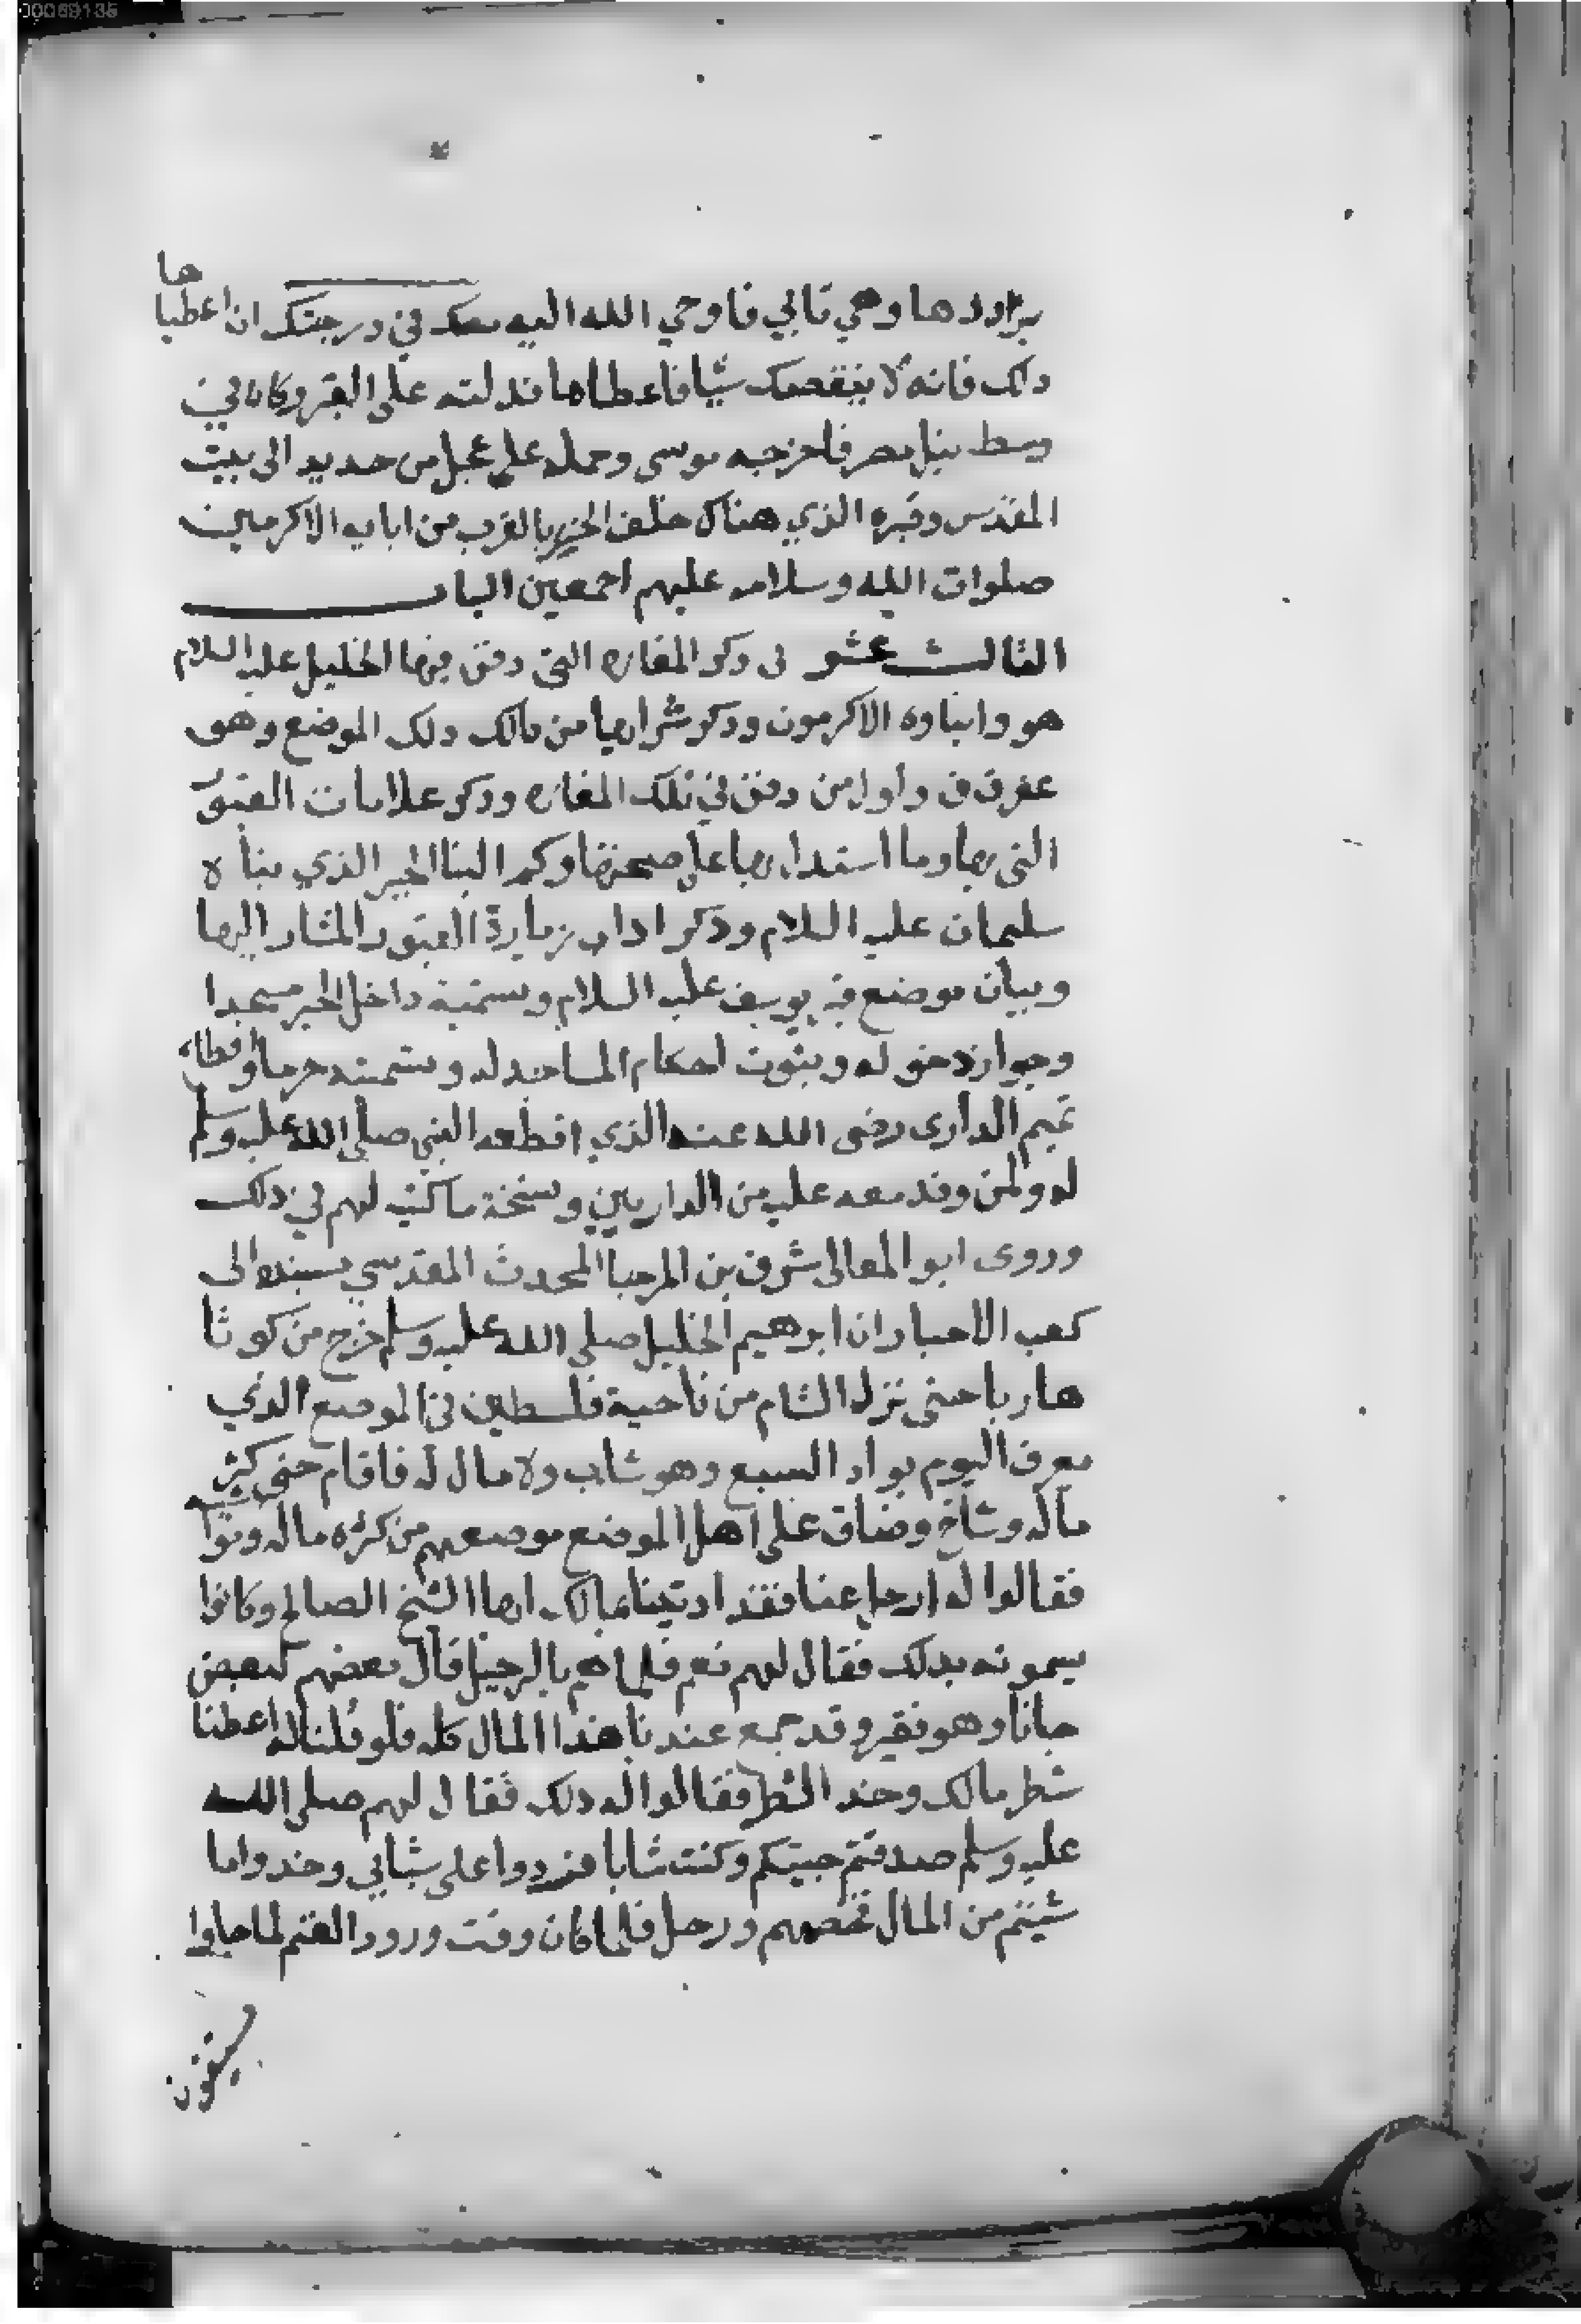 00069135
يراودها وهي تابي فاوحي الله اليه معك في درجتك ان اعطيتها
دلك فانه لا ينقصك شيا فاعطاها فدلته على القبر وكان في
وسط نيل مصر فاخرجه موسى وحمله على عجل من حديد الى بيت
المقدس وقبره الذي هناك خلف الحير بالقرب من ابايه الاكرمين
صلوات الله وسلامه عليهم اجمعين الباب
الثالث عشر في دكر المغاره التي دفن فيها الخليل عليه السلام
هو وابناوه الاكرمون ودكر شرايها من مالك دلك الموضع وهو
عفرون واول من دفن في تلك المغاره ودكر علامات القبور
التي بها وما استدل بها على صحتها وكم البنا الحير الذي بناه
سليمان عليه السلام ودكر اداب زيارة القبور المشار اليها
وبيان موضع قبر يوسف عليه السلام وتسمية داخل الحير مسجدا
وجواز دخوله وثبوت احكام المساجد له وتسميته حرما واقطاع
تميم الدارى رضى الله عنه الذي اقطعه النبي صلى الله عليه وسلم
له ولمن وفد معه عليه من الداريين ونسخة ما كتب لهم في دلك
وروى ابو المعالى شرف بن المرجا المحدث المقدسي بسنده الى
كعب الاحبار ان ابرهيم الخليل صلي الله عليه وسلم خرج من كوثا
هاربا حتى نزل الشام من ناحية فلسطين في الموضع الذي
يعرف اليوم بواد السبع وهو شاب ولا مال له فاقام حتى كثر
ماله وشاخ وضاق على اهل الموضع موضعهم من كثره ماله ومواشيه
فقالوا له ارحل عنا فقد اديتنا بمالك ايها الشيخ الصالح وكانوا
يسمونه بدلك فقال لهم نعم فلما هم بالرحيل قال بعضهم لبعض
جانا وهو فقير وقد جمع عندنا هذا المال كله فلو قلنا له اعطنا
شطر مالك وخذ الشطر فقالوا له دلك فقال لهم صلى الله
عليه وسلم صدقتم جيتكم وكنت شابا فردوا على شبابي وخدوا ما
شيتم من المال فخصمهم ورحل فلما كان وقت ورود الغنم لما جاوا
يستقون